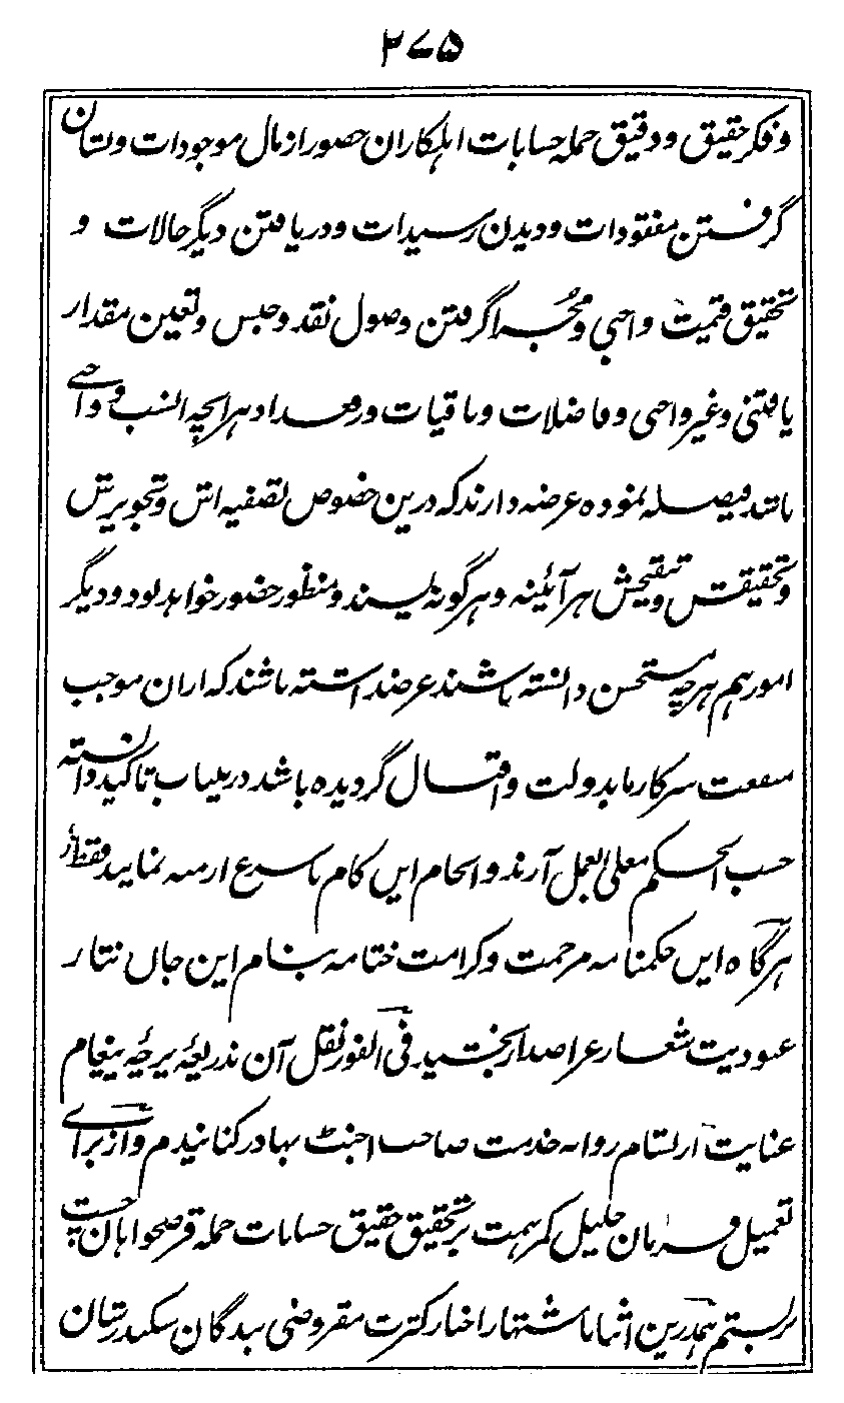 ۲۷۵
و فکر حقیق و دقیق جمله حسابات اہلکاران حضور از مال موجودات و نشان
گرفتن مفقودات و دیدن رسیدات و دریافتن دیگر حالات و
تحقیق قیمت واجبی و مجرا گرفتن وصول نقد و جنس و تعین مقدار
یافتنی و غیر واجبی و فاضلات و باقیات و مقداد ہر انچه انسب و واجبی
باشد فیصله نموده عرضه دارند که درین خصوص تصفیه اش و تجویزش
و تحقیقش و تنقیحش هر آئینه و هر گونه پسند و منظور حضور خواهد بود و دیگر
امور هم هر چه مستحسن دانسته باشند عرضداشته باشند که ازان موجب
منفعت سرکار مابدولت و اقبال گردیده باشد درینباب تاکید دانسته
حسب الحکم معلی العمل آرند و انجام این کام باسرع ازمنه نمایند فقط از
هر گاه این حکمنامه مرحمت و کرامت ختامه بنام این جان نثار
عبودیت شعار عز اصدار بخشید فی الفور نقل آن بذریعهٔ پرچهٔ پیغام
عنایت ارتسام روانه خدمت صاحب اجنٹ بہادر کنانیدم و از برای
تعمیل فرمان جلیل کمر ہمت بر تحقیق حقیق حسابات جمله قرضخواہان چست
بربستم ہمدرین اثنا باشتہار اخبار کثرت مقروضی بندگان سکندرشان